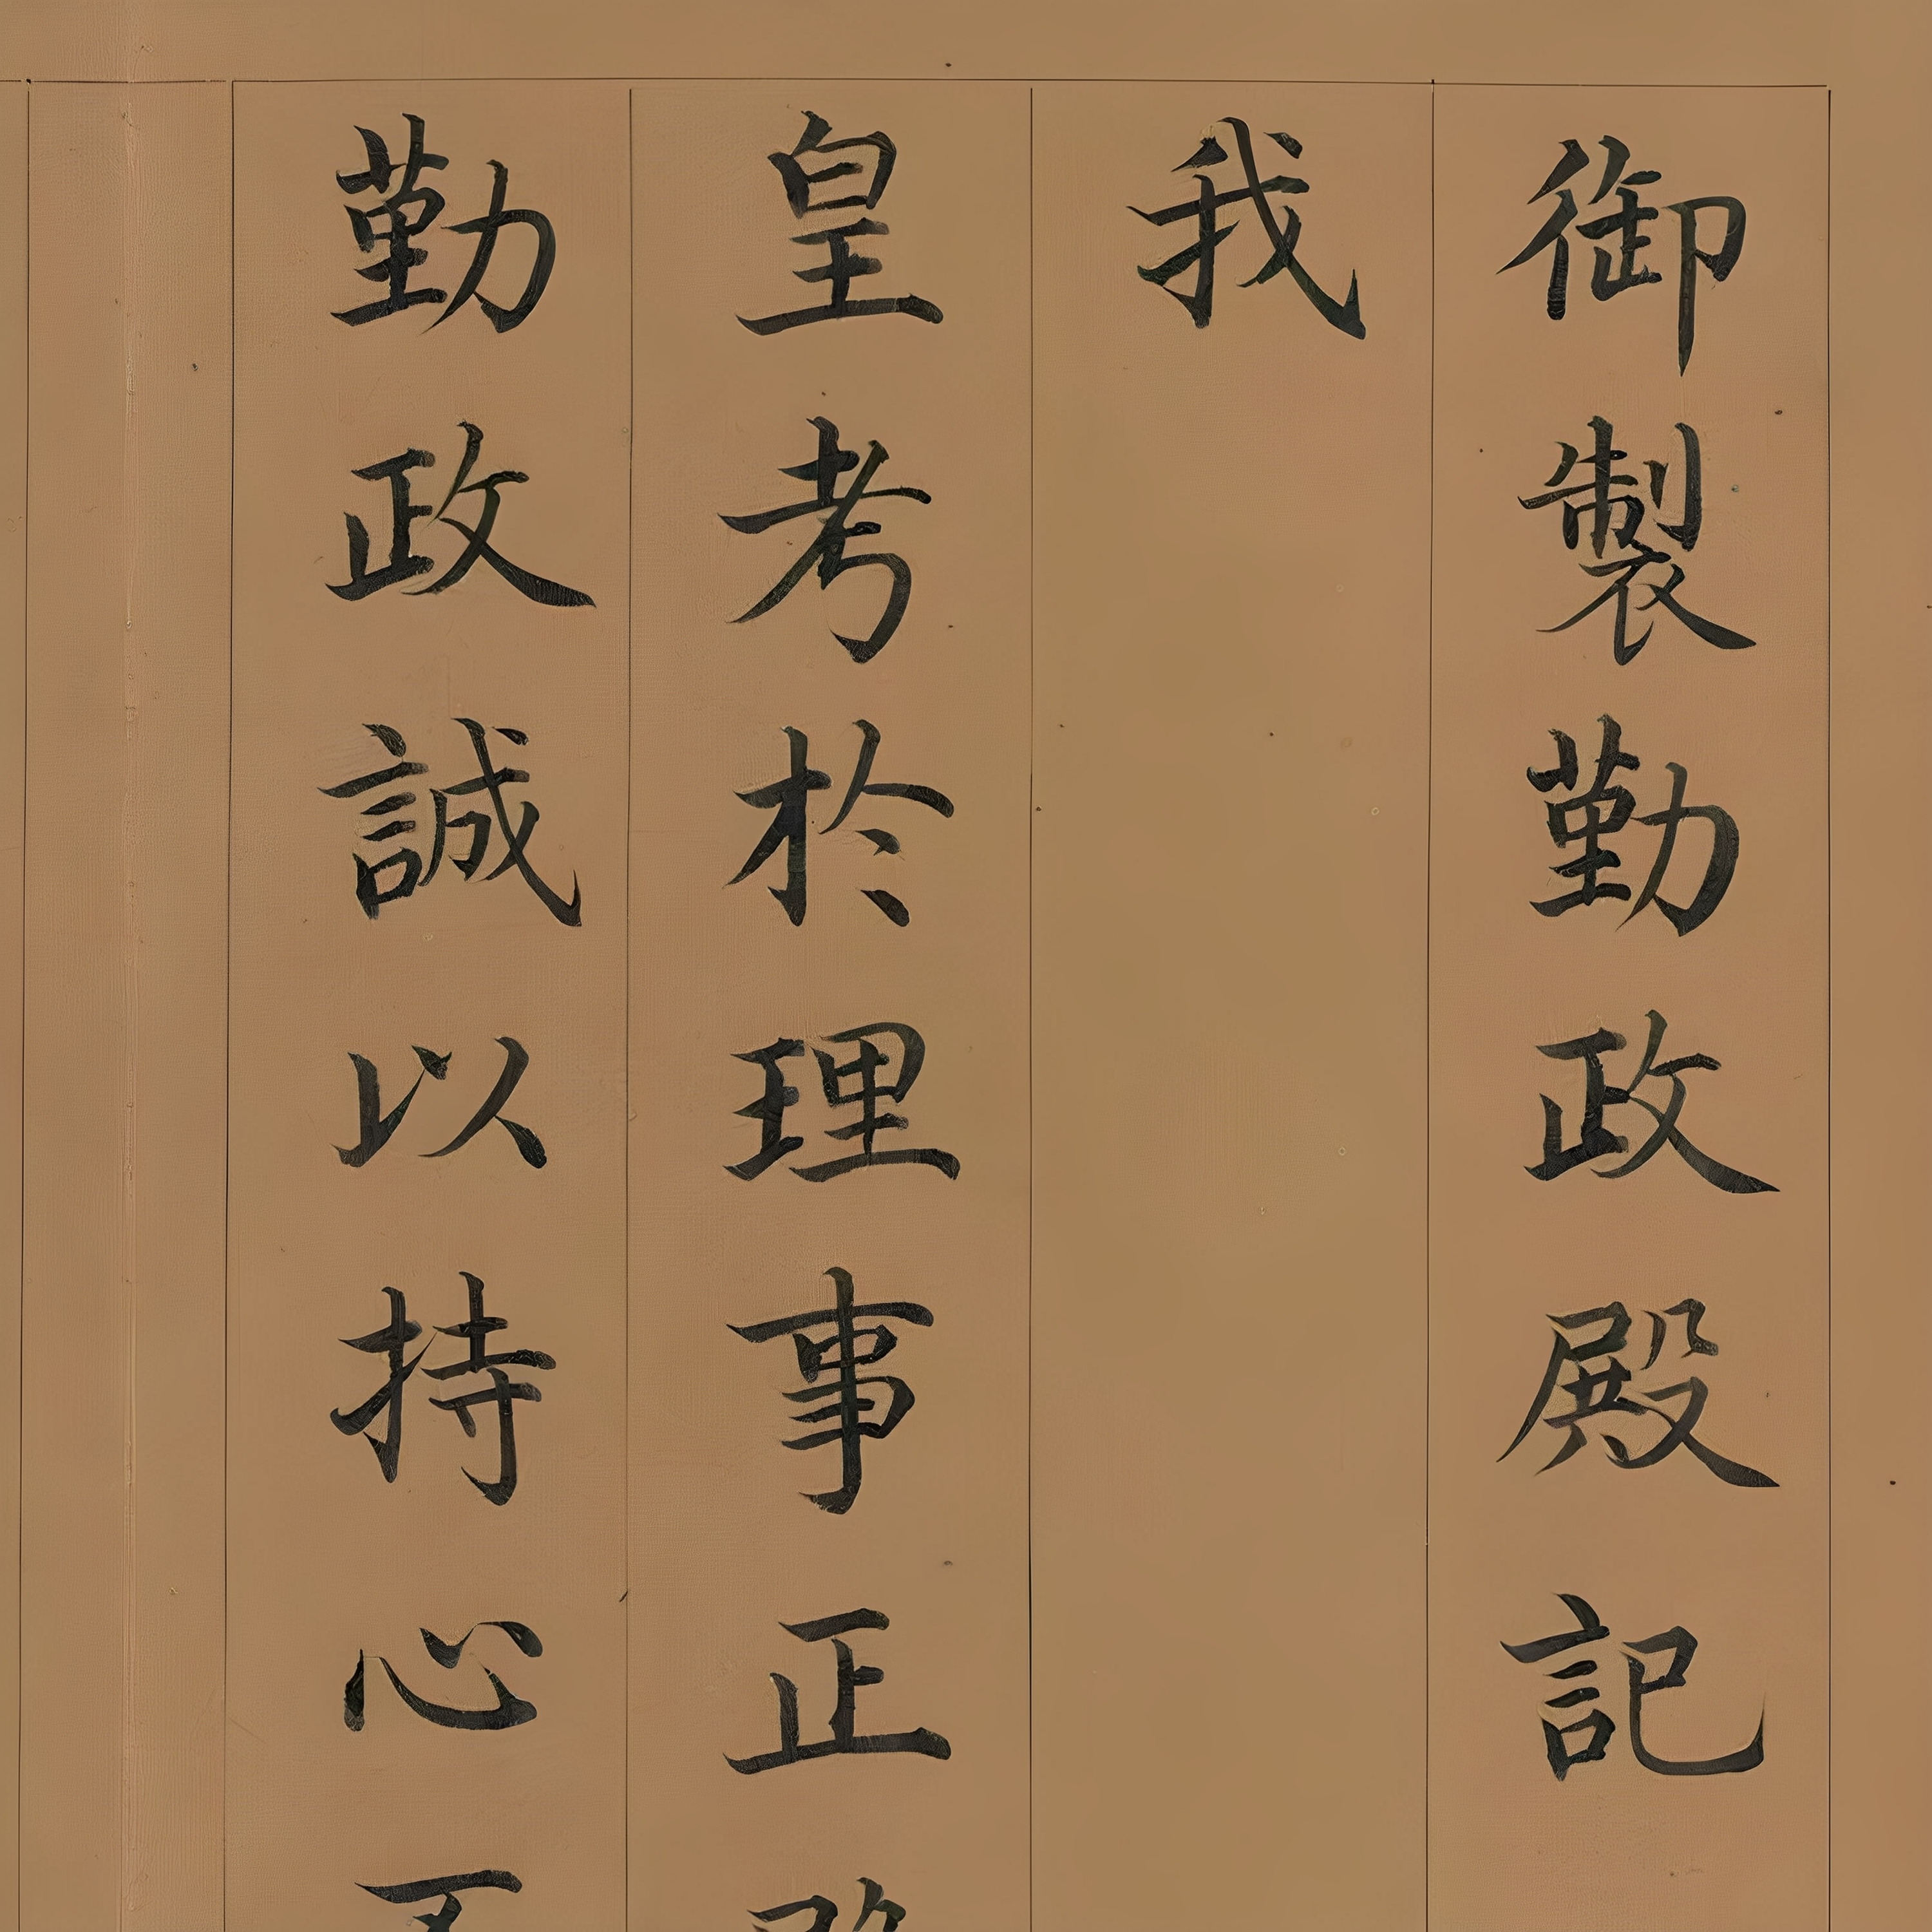 御製勤政殿記
我
皇考於理事正
勤政誠以持心